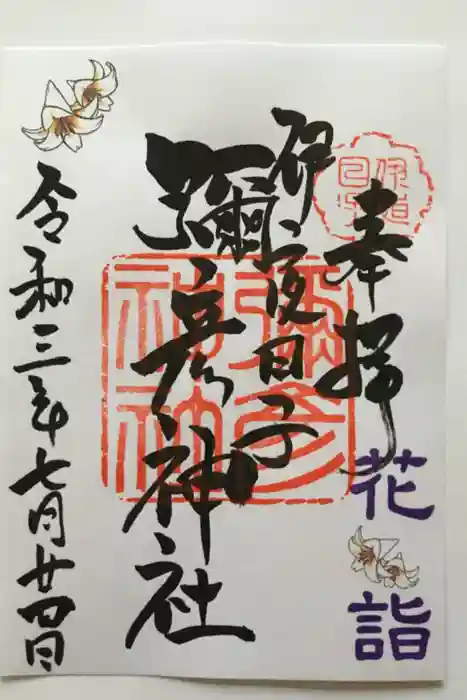 奉拝
花詣
伊夜日子
彌彦神社
令和三年七月廿四日
彌彦神社